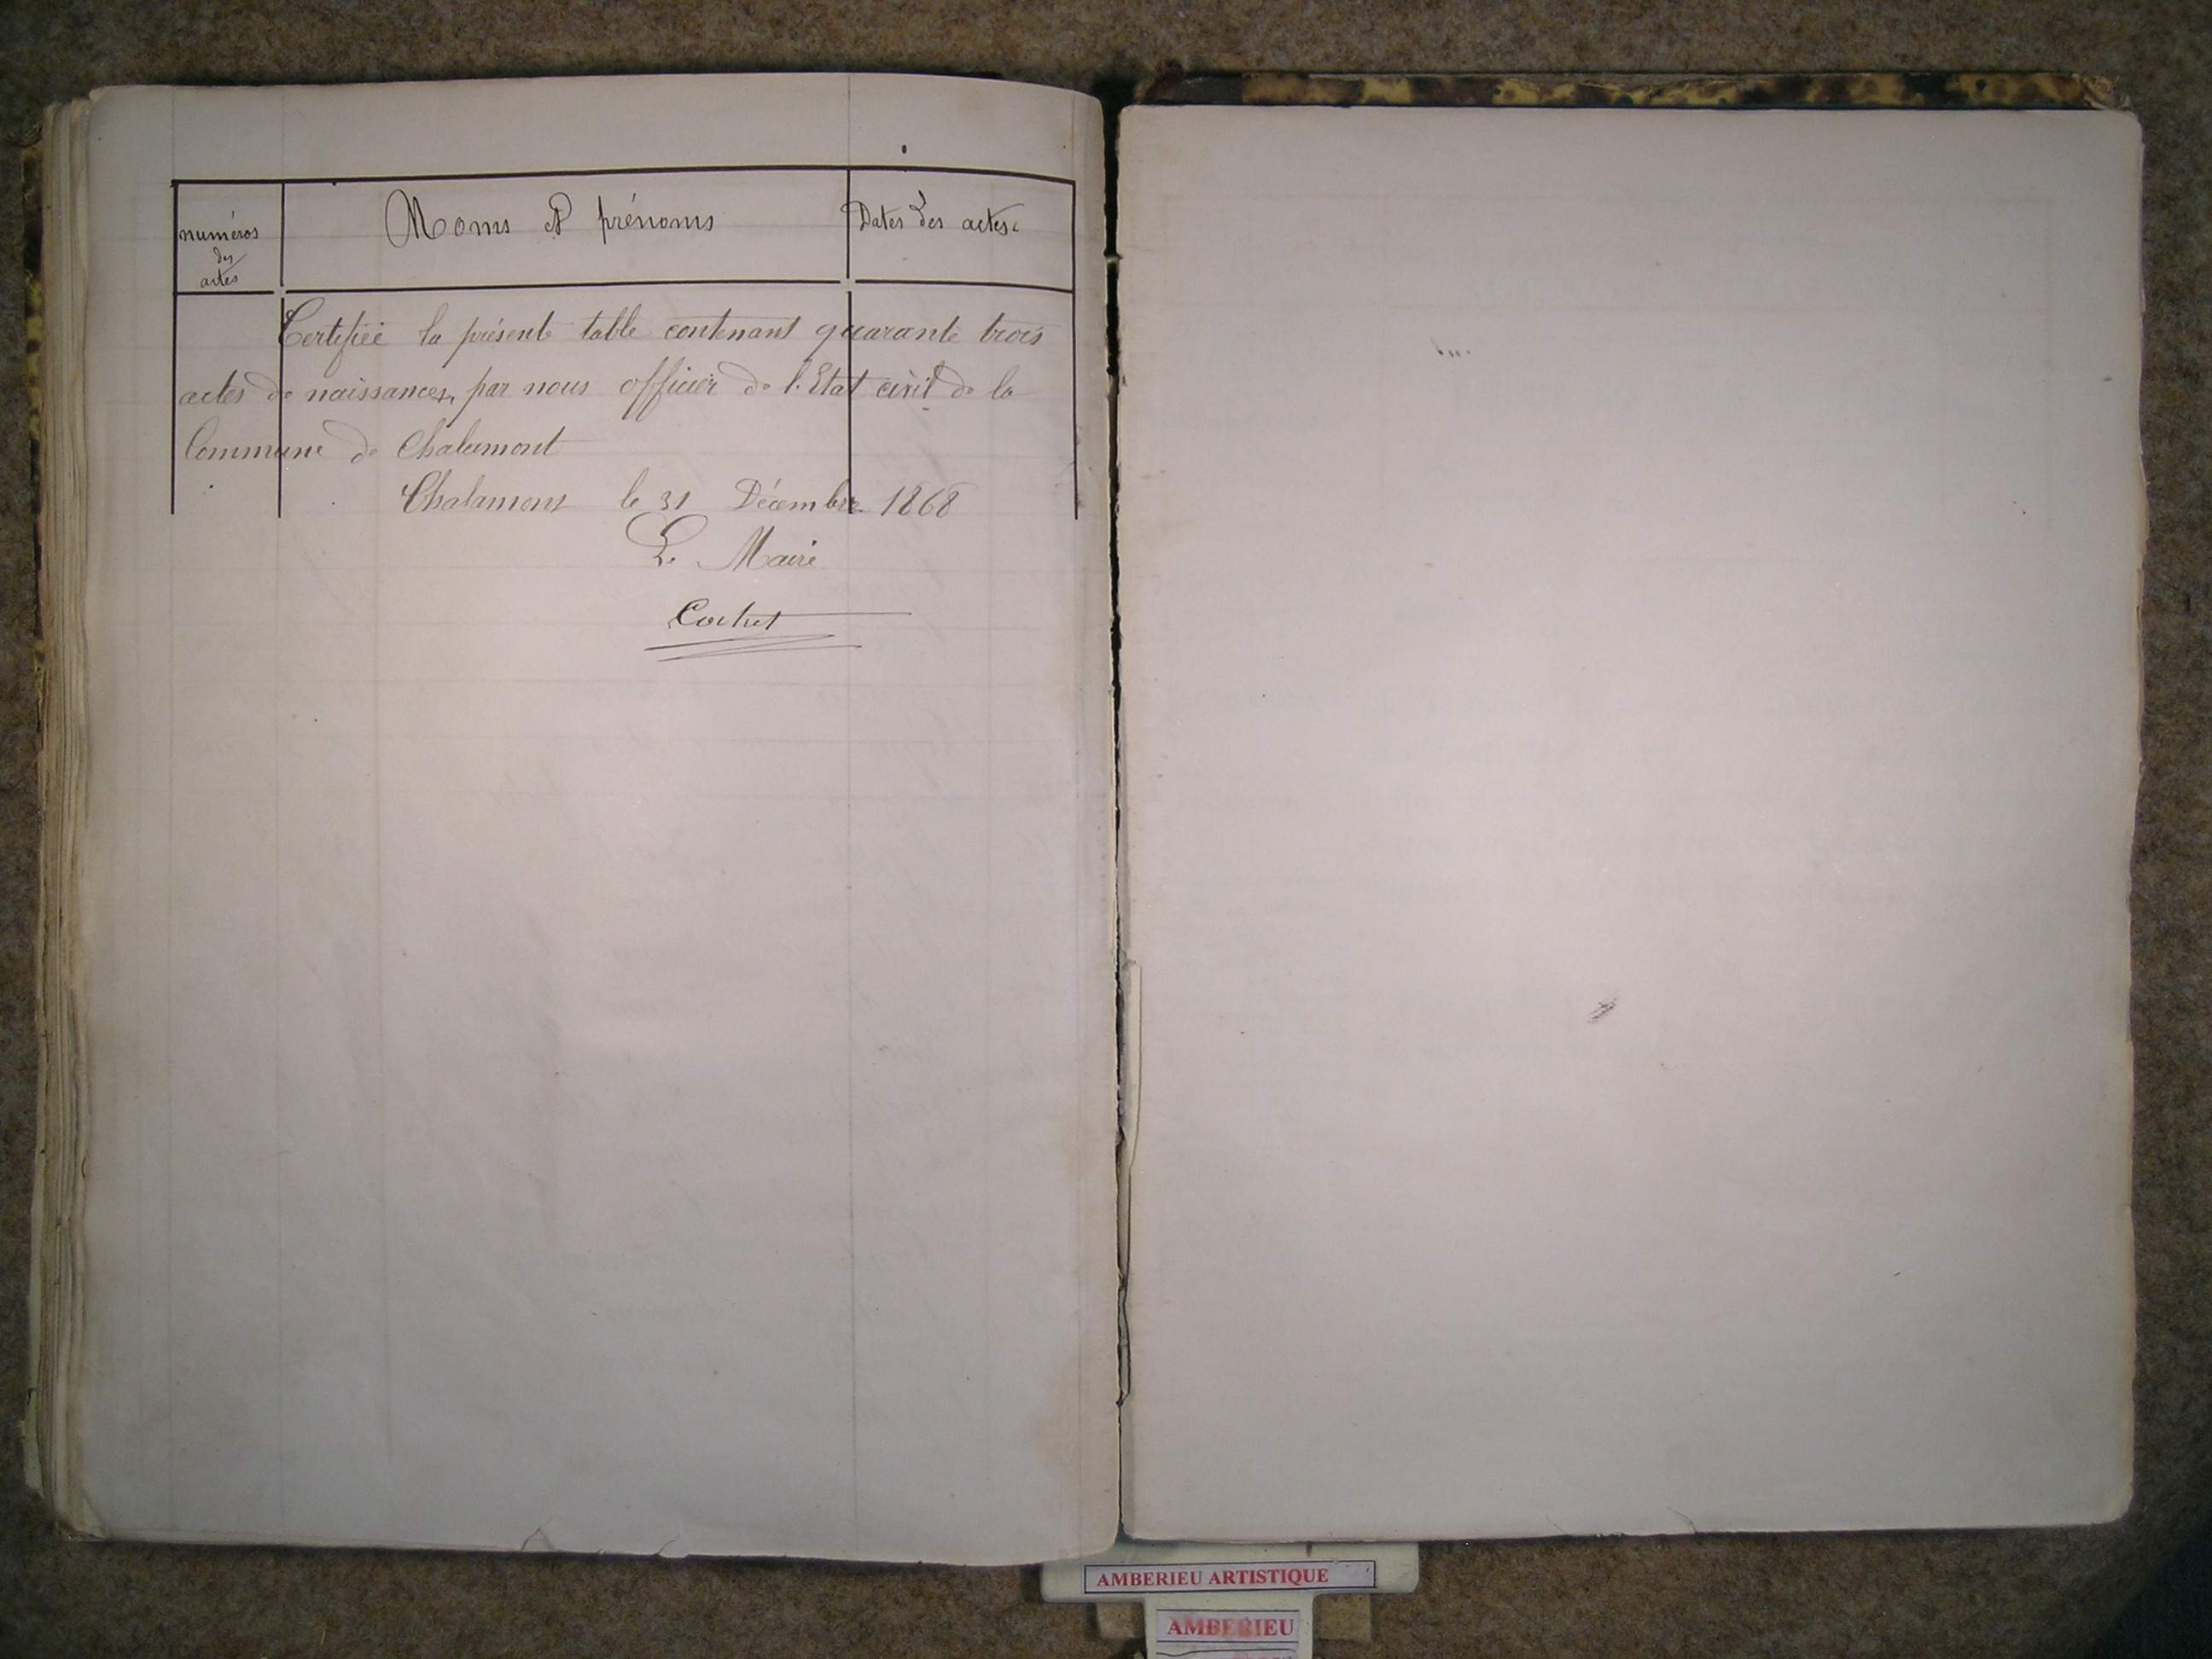 numéros des actes
Noms et prénoms
Dates des actes.
Certifiée la présente table contenant quarante trois
actes de naissances, par nous officier de l'Etat civil de la
Commune de Chalamont
Chalamont le 31 Décembre 1868
Le Maire
Cochet
AMBERIEU ARTISTIQUE
AMBERIEU